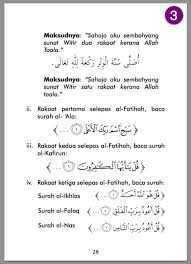 3
Maksudnya: "Sahaja aku sembahyang
sunat Witir dua rakaat kerana Allah
Taala."
أُصَلِّى سُنَّةَ الْوِتْرِ رَكْعَةً لِلّٰهِ تَعَالَى.
Maksudnya: "Sahaja aku sembahyang
sunat Witir satu rakaat kerana Allah
Taala."
ii. Rakaat pertama selepas al-Fatihah, baca
surah al-'Ala:
﴿ سَبِّحِ اسْمَ رَبِّكَ الْأَعْلَى ۝ ... ﴾
iii. Rakaat kedua selepas al-Fatihah, baca surah
al-Kafirun:
﴿ قُلْ يَا أَيُّهَا الْكَافِرُونَ ۝ ... ﴾
iv. Rakaat ketiga selepas al-Fatihah, baca surah:
Surah al-Ikhlas ﴿ قُلْ هُوَ اللَّهُ أَحَدٌ ۝ ... ﴾
Surah al-Falaq ﴿ قُلْ أَعُوذُ بِرَبِّ الْفَلَقِ ۝ ... ﴾
Surah al-Nas ﴿ قُلْ أَعُوذُ بِرَبِّ النَّاسِ ۝ ... ﴾
28